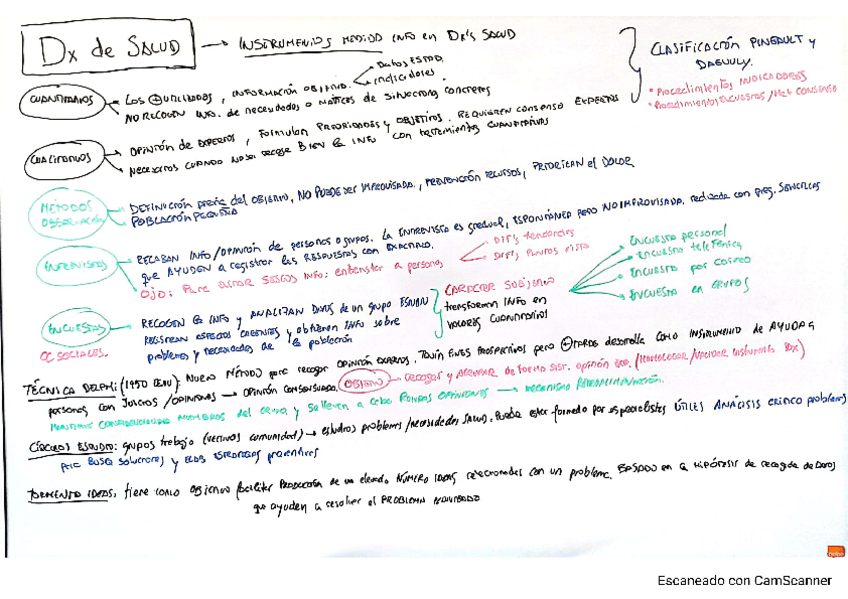 Dx de SALUD → INSTRUMENTOS MEDIDA INFO en Dx's SALUD
CLASIFICACIÓN PINEAULT y DAEVULY.
* Procedimientos INDICADORES
* Procedimientos ENCUESTAS / MET CONSENSO
CUANTITATIVOS
- LOS ⊕ UTILIZADOS, INFORMACIÓN OBJETIVA.
Datos ESTAD.
indicadores
NO RECOGEN INFO. de necesidades o MATICES de SITUACIONES CONCRETAS
CUALITATIVOS
- OPINIÓN DE EXPERTOS, FORMULAN PRIORIDADES y OBJETIVOS. REQUIEREN CONSENSO EXPERTOS
- NECESARIOS CUANDO NO SE recoge BIEN la INFO con herramientas CUANTITATIVAS
MÉTODOS OBSERVACIÓN
- DEFINICIÓN previa del OBJETIVO, NO PUEDE SER IMPROVISADA, RECURSOS, PRIORICEN el
- POBLACIÓN PEQUEÑA
ENTREVISTAS
- RECABAN INFO/OPINIÓN de personas o grupos. La ENTREVISTA es gradual, ESPONTÁNEA pero NO IMPROVISADA. realizada con preg. SENCILLAS
que AYUDEN a registrar las RESPUESTAS con EXACTITUD.
- OJO: Para EVITAR SESGOS INFO: entrevistar a personas
Dif's tendencias
Dif's puntos vista
ENCUESTAS
CC SOCIALES.
RECOGEN la INFO y ANALIZAN DATOS de un grupo
REGISTRAN ASPECTOS y obtienen INFO sobre
problemas y necesidades de la población
CARÁCTER SUBJETIVO
transforman INFO en
VALORES CUANTITATIVOS
ENCUESTA personal
ENCUESTA telefónica
ENCUESTA por CORREO
ENCUESTA en GRUPOS
TÉCNICA DELPHI: (1950 EEUU): NUEVO MÉTODO para recoger OPINIÓN EXPERTOS. FINES PROSPECTIVOS pero ⊕ TARDE desarrolla como INSTRUMENTO de AYUDA a
personas con JUICIOS/OPINIONES → OPINIÓN CONSENSUADA. OBJETIVO → RECOGER y AGRUPAR de forma sist. opinión
MIEMBROS del GRUPO, y se lleven a cabo RONDAS OPINIONES → MECANISMO RETROALIMENTACIÓN.
CÍRCULOS ESTUDIO: grupos trabajo (vecinos comunidad) → estudios problemas/necesidades SALUD. Puede estar formado por especialistas ÚTILES ANÁLISIS CRÍTICO problemas
para BUSCAR soluciones y ESTRATEGIAS preventivas
TORMENTA IDEAS, tiene como OBJETIVO facilitar PRODUCCIÓN de un elevado NÚMERO IDEAS relacionadas con un problema. BASADO en la HIPÓTESIS de recogida de Datos
que ayuden a resolver el PROBLEMA
Escaneado con CamScanner